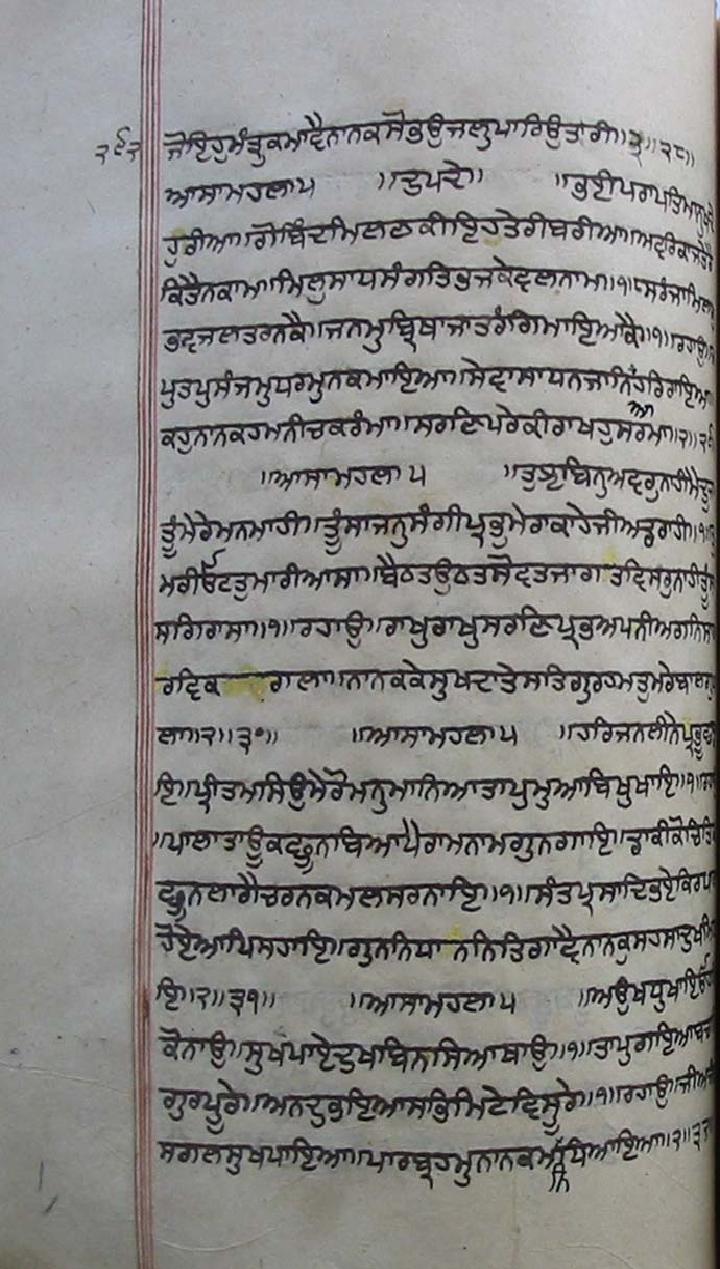 ੨੬੨ ਜੋਇਹੁਮੰਤੁਕਮਾਵੈਨਾਨਕਸੋਭਉਜਲੁਪਾਰਿਉਤਾਰੀ॥੩॥੨੮॥
ਆਸਾਮਹਲਾ੫ ॥ਦੁਪਦੇ॥ ॥ਭਈਪਰਾਪਤਿਮਾਨੁਖਦੇ
ਹੁਰੀਆ॥ਗੋਬਿੰਦਮਿਲਣਕੀਇਹਤੇਰੀਬਰੀਆ॥ਅਵਰਿਕਾਜਤੇਰੈ
ਕਿਤੈਨਕਾਮ॥ਮਿਲੁਸਾਧਸੰਗਤਿਭਜਕੇਵਲਨਾਮ॥੧॥ਸਰੰਜਾਮਿਲਾਗੁ
ਭਵਜਲਤਰਨਕੈ॥ਜਨਮੁਬ੍ਰਿਥਾਜਾਤਰੰਗਿਮਾਇਆਕੈ॥੧॥ਰਹਾਉ॥
ਪੁਤਪੁਸੰਜਮੁਧਰਮੁਨਕਮਾਇਆ॥ਸੇਵਾਸਾਧਨਜਾਨਿਹਰਿਰਾਇਆ
ਕਹੁਨਾਨਕਹਮਨੀਚਕਰੰਮਾ॥ਸਰਣਿਪਰੇਕੀਰਾਖਹੁਸਰਮਾ॥੨॥੨੯
॥ਆਸਾਮਹਲਾ੫ ॥ਤੁਝਬਿਨੁਅਵਰੁਨਾਹੀਮੈਦੂਜਾ
ਤੂੰਮੇਰੇਮਨਮਾਹੀ॥ਤੂੰਸਾਜਨੁਸੰਗੀਪ੍ਰਭੁਮੇਰਾਕਾਹੇਜੀਅਡਰਾਹੀ॥੧॥ਤੁ
ਮਰੀਓਟਤੁਮਾਰੀਆਸਾ॥ਬੈਠਤਊਠਤਸੋਵਤਜਾਗਤਵਿਸਰੁਨਾਹੀਤੂੰਸ
ਸਗਿਰਾਸਾ॥੧॥ਰਹਾਉ॥ਰਾਖੁਰਾਖੁਸਰਣਿਪ੍ਰਭਅਪਨੀਅਗਨਿਸਾ
ਗਰਵਿਕ ਰਾਲਾ॥ਨਾਨਕਕੇਸੁਖਦਾਤੇਸਤਿਗੁਰਹਮਤੁਮਰੇਬਾਲਗੁਪਾ
ਲਾ॥੨॥੩੦॥ ॥ਆਸਾਮਹਲਾ੫ ॥ਹਰਿਜਨਲੀਨੇਪ੍ਰਭੂਛਡਾ
ਇ॥ਪ੍ਰੀਤਮਸਿਉਮੇਰੋਮਨੁਮਾਨਿਆਤਾਪੁਮੁਆਬਿਖੁਖਾਇ॥੧॥ਰਹਾ
॥ਪਾਲਾਤਾਊਕਛੂਨਬਿਆਪੈਰਾਮਨਾਮਗੁਨਗਾਇ॥ਡਾਕੀਕੋਚਿਤਿ
ਕਛੂਨਲਾਗੈਚਰਨਕਮਲਸਰਨਾਇ॥੧॥ਸੰਤਪ੍ਰਸਾਦਿਭਏਕਿਰਪਾ
ਹੋਏਆਪਿਸਹਾਇ॥ਗੁਨਨਿਧਾਨਨਿਤਿਗਾਵੈਨਾਨਕੁਸਹਸਾਦੁਖੁਮਿਟਾ
ਇ॥੨॥੩੧॥ ॥ਆਸਾਮਹਲਾ੫ ॥ਅਉਖਧੁਖਾਇਓਹਰਿ
ਕੋਨਾਉ॥ਸੁਖਪਾਏਦੁਖਬਿਨਸਿਆਥਾਉ॥੧॥ਤਾਪੁਗਇਆਬਚਨਿ
ਗੁਰਪੂਰੇ॥ਅਨਦੁਭਇਆਸਭਿਮਿਟੇਵਿਸੂਰੇ॥੧॥ਰਹਾਉ॥ਜੀਅਜੰ
ਸਗਲਸੁਖਪਾਇਆ॥ਪਾਰਬ੍ਰਹਮੁਨਾਨਕਮਨਿਧਿਆਇਆ॥੨॥੩੨